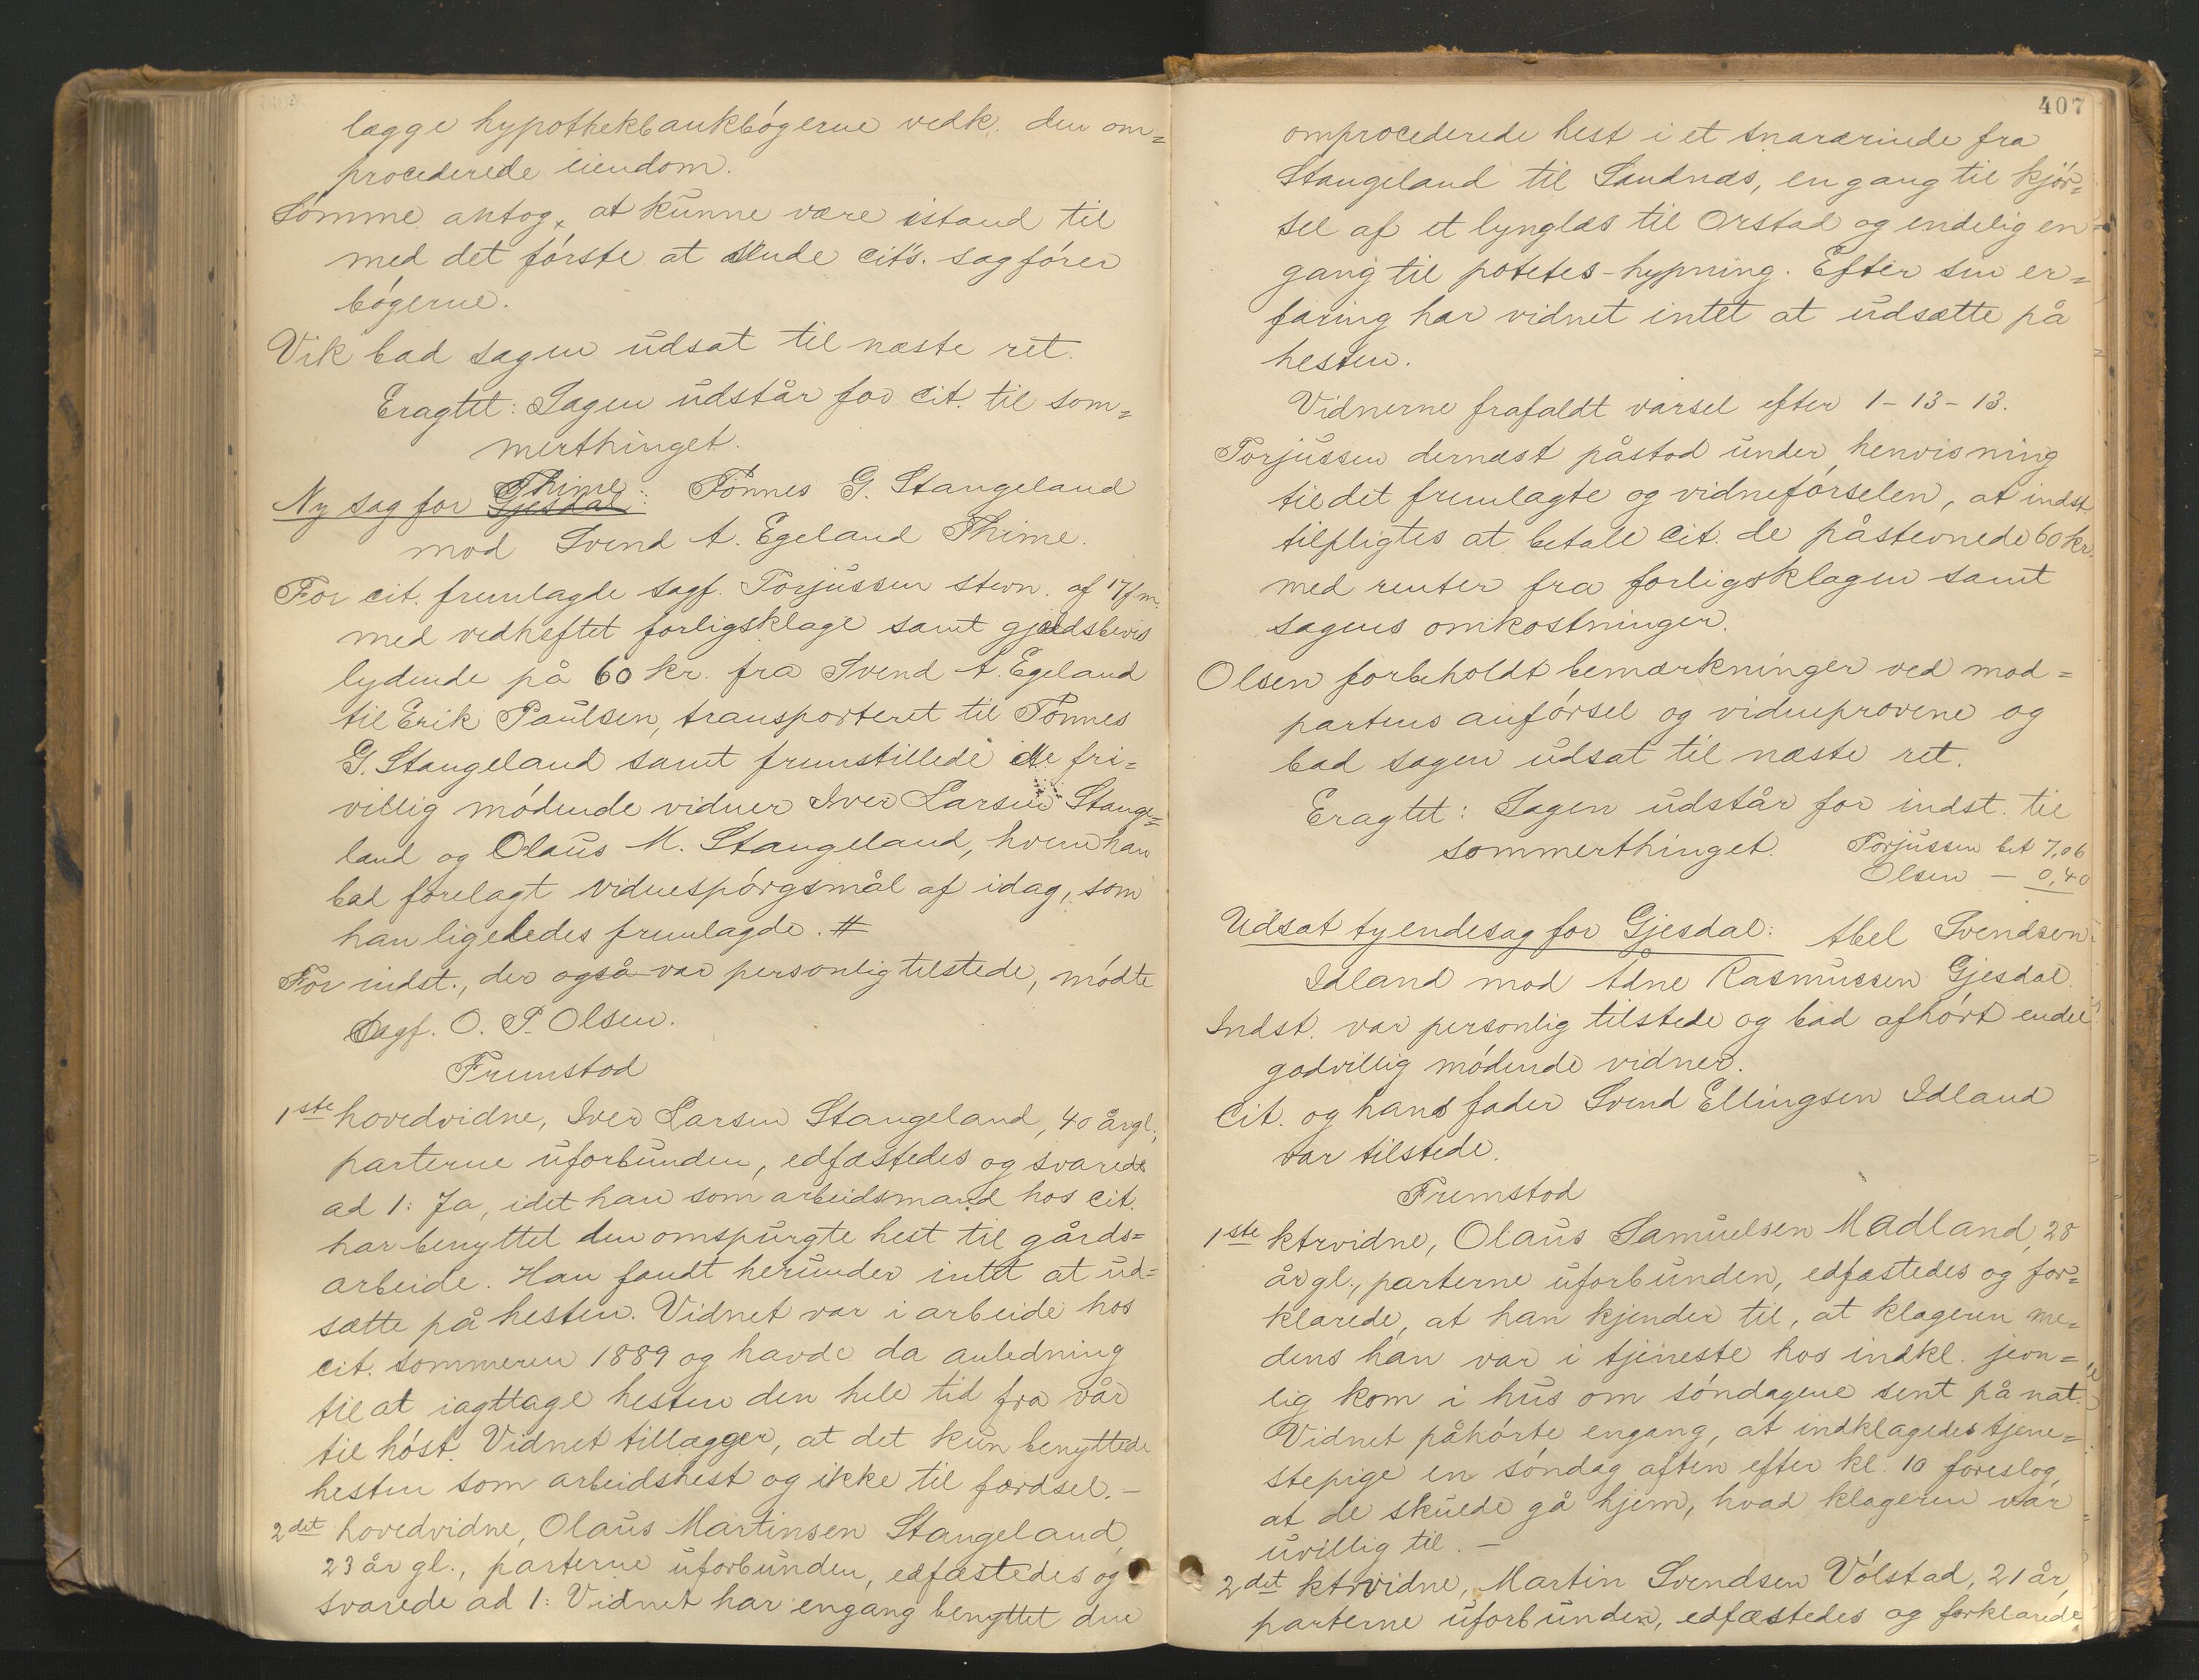 lægge hypothekbankbøgerne vedk. den om=
procederede eiendom.
Somme antog, at kunne være istand til
med det første at sende cit's. sagfører
bøgerne.
Vik bad sagen udsat til næste ret.
Eragtet: Sagen udstår for cit. til som=
merthinget.
Thime:
Ny sag for Gjesdal: Tønnes G. Stangeland
mod Svend A. Egeland Thime.
For cit. fremlagde sagf. Torjussen stevn. af 17/f m.
med vedheftet forligsklage samt gjældsbevis
lydende på 60 kr. fra Svend A. Egeland
til Erik Paulsen, transporteret til Tønnes
G. Stangeland samt fremstillede de fri=
villig mødende vidner Iver Larsen Stange=
land og Olaus M. Stangeland, hvem han
bad forelagt vidnespørgsmål af idag, som
han ligeledes fremlagde. #
For indst., der også var personlig tilstede, mødte
Sagf. O. P. Olsen.
Fremstod
1ste hovedvidne, Iver Larsen Stangeland, 40 årgl.,
parterne uforbunden, edfæstedes og svarede
ad 1: Ja, idet han som arbeidsmand hos cit.
har benyttet den omspurgte hest til gårds=
arbeide. Han fandt herunder intet at ud=
sætte på hesten. Vidnet var i arbeide hos
cit. sommeren 1889 og havde da anledning
til at iagttage hesten den hele tid fra vår
til høst. Vidnet tillægger, at det kun benyttede
hesten som arbeidshest og ikke til færdsel. —
2det hovedvidne, Olaus Martinsen Stangeland,
23 år gl., parterne uforbunden, edfæstedes og
svarede ad 1: Vidnet har engang benyttet den
407
omprocederede hest i et snarærinde fra
Stangeland til Sandnæs, en gang til kjør=
sel af et lynglæs til Orstad og endelig en
gang til potetes-hypning. Efter sin er=
faring har vidnet intet at udsætte på
hesten.
Vidnerne frafaldt varsel efter 1-13-13.
Torjussen dernæst påstod under henvisning
til det fremlagte og vidneførselen, at indst.
tilpligtes at betale cit. de påstevnede 60 kr.
med renter fra forligsklagen samt
sagens omkostninger.
Olsen forbeholdt bemærkninger ved mod=
partens anførsel og vidneprovene og
bad sagen udsat til næste ret.
Eragtet: Sagen udstår for indst. til
sommerthinget. Torjussen bet 7,06
Olsen — 0,40
Udsat tyendesag for Gjesdal: Abel Svendsen
Idland mod Adne Rasmussen Gjesdal.
Indst. var personlig tilstede og bad afhørt endel
godvillig mødende vidner.
Cit. og hans fader Svend Ellingsen Idland
var tilstede.
Fremstod
1ste ktrvidne, Olaus Samuelsen Madland, 28
år gl., parterne uforbunden, edfæstedes og for=
klarede, at han kjender til, at klageren me=
dens han var i tjeneste hos indkl. jevn=
lig kom i hus om søndagene sent på nat.
Vidnet påhørte engang, at indklagedes tjene=
stepige en søndag aften efter kl. 10 foreslog,
at de skulde gå hjem, hvad klageren var
uvillig til. —
2det ktrvidne, Martin Svendsen Vølstad, 21 år,
parterne uforbunden, edfæstedes og forklarede